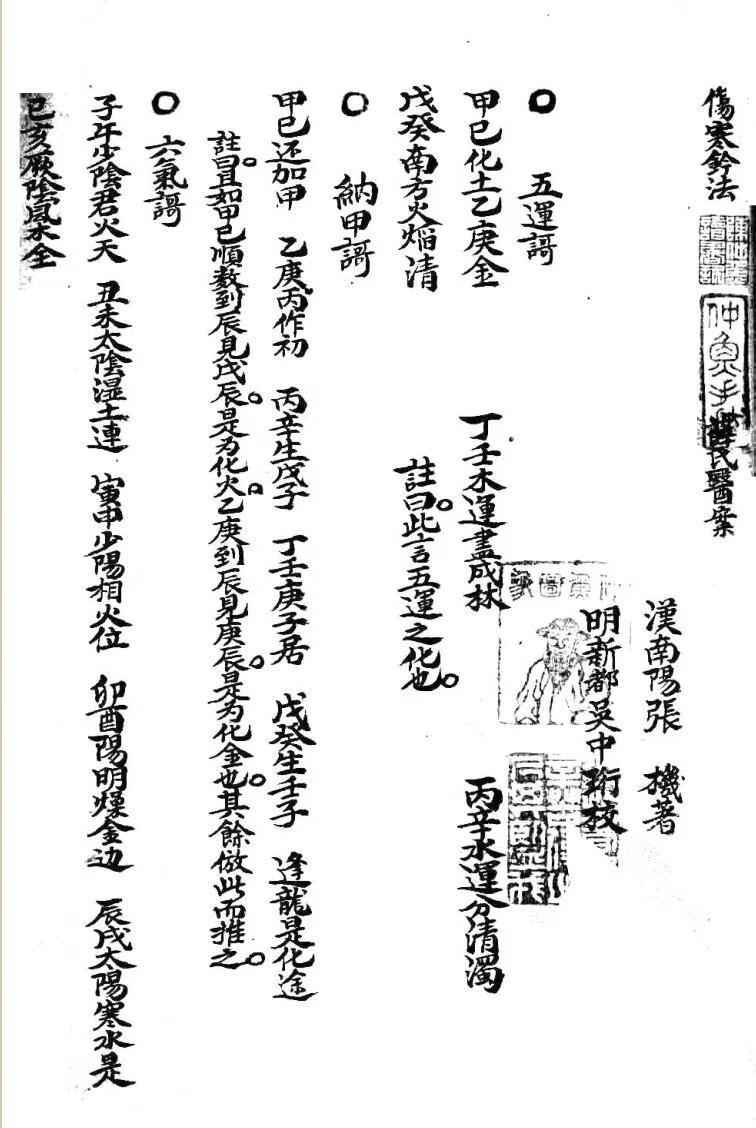 傷寒鈐法 薛氏醫案
漢南陽張 機著
明新都吳中珩校
○ 五運謌
甲己化土乙庚金 丁壬木運盡成林 丙辛水運分清濁
戊癸南方火焰清 註曰此言五運之化也
○ 納甲謌
甲己还加甲 乙庚丙作初 丙辛生戊子 丁壬庚子居 戊癸生壬子 逢龍是化途
註曰且如甲己順数到辰見戊辰是为化火乙庚到辰見庚辰是为化金也其餘倣此而推之
○ 六氣謌
子午少陰君火天 丑未太陰湿土連 寅申少陽相火位 卯酉陽明燥金边 辰戌太陽寒水是
己亥厥陰風木全